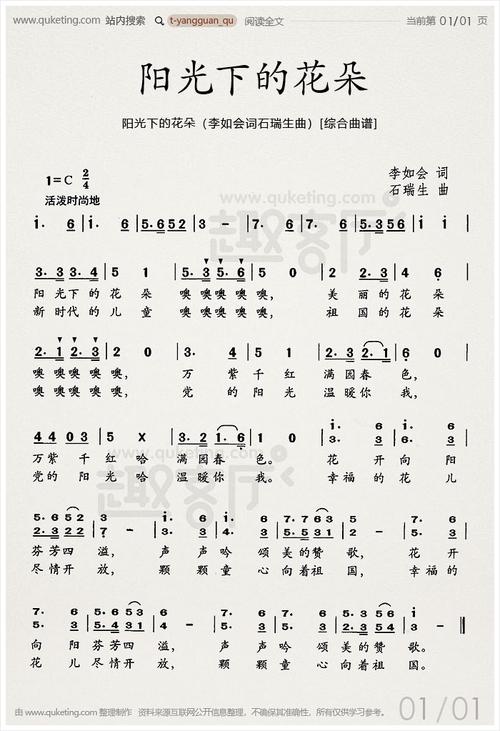 www.quketing.com 站内搜索 t-yangguan_qu 阅读全文 当前第 01/01 页
阳光下的花朵
阳光下的花朵（李如会词石瑞生曲）[综合曲谱]
1=C 2/4
李如会 词
活泼时尚地
石瑞生 曲
www.quketing.com
趣客厅
i. 6 | i. 6 | 5.652 | 3 - | 7. 6 | 7. 6 | 5.356 | i i |
3.3 3.4 | 5 1 | 5.3 5.6 | 5 0 | 2 2.3 | 4 6 |
阳光下的 花 朵 噢噢噢噢噢， 美 丽的 花 朵
新时代的 儿 童 噢噢噢噢噢， 祖 国的 花 朵
2.1 2.3 | 2 0 | 3. 3 | 5 5 | 2.3 2.1 | 6 0 |
噢噢噢噢噢， 万 紫 千 红 满园春 色，
噢噢噢噢噢， 党 的 阳 光 温暖你 我，
4403 | 5 X | 3.2 1.6 | 1 0 | i. 6 | i. 6 |
3. 3 | 2. 3 |
万紫千 红 哈 满园春 色。 花 开 向 阳
党的阳 光 哈 温暖你 我。 幸 福 的 花 儿
www.quketing.com
趣客厅
5.652 | 3 - | 3 i. | 6 3 | 7.763 | 5 - | 7. 6 |
2.232 | 7 - | 3 3. | 3 3 | 2.231 | 2 - | 5. 3 |
芬芳四 溢， 声 声 吟 颂 美的赞 歌， 花 开
尽情开 放， 颗 颗 童 心 向着祖 国， 幸 福 的
7. 6 | 5.653 | 6 - | 3 i. | 6 3 | 5.356 | i - ‖
5. 3 | 5.431 | 4 - | 3 3. | 3 3 | 2.354 | 3 - ‖
向 阳 芬芳四 溢， 声 声 吟 颂 美的赞 歌。
花 儿 尽情开 放， 颗 颗 童 心 向着祖 国。
由 www.quketing.com 整理制作 资料来源互联网公开信息整理，不确保其准确性，所有仅供学习参考。 01/01